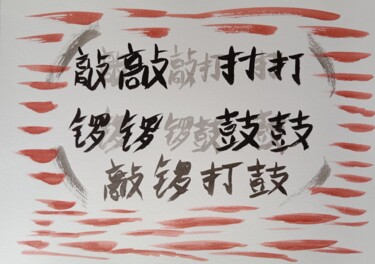 敲敲敲打打打
锣锣锣鼓鼓鼓
敲锣打鼓